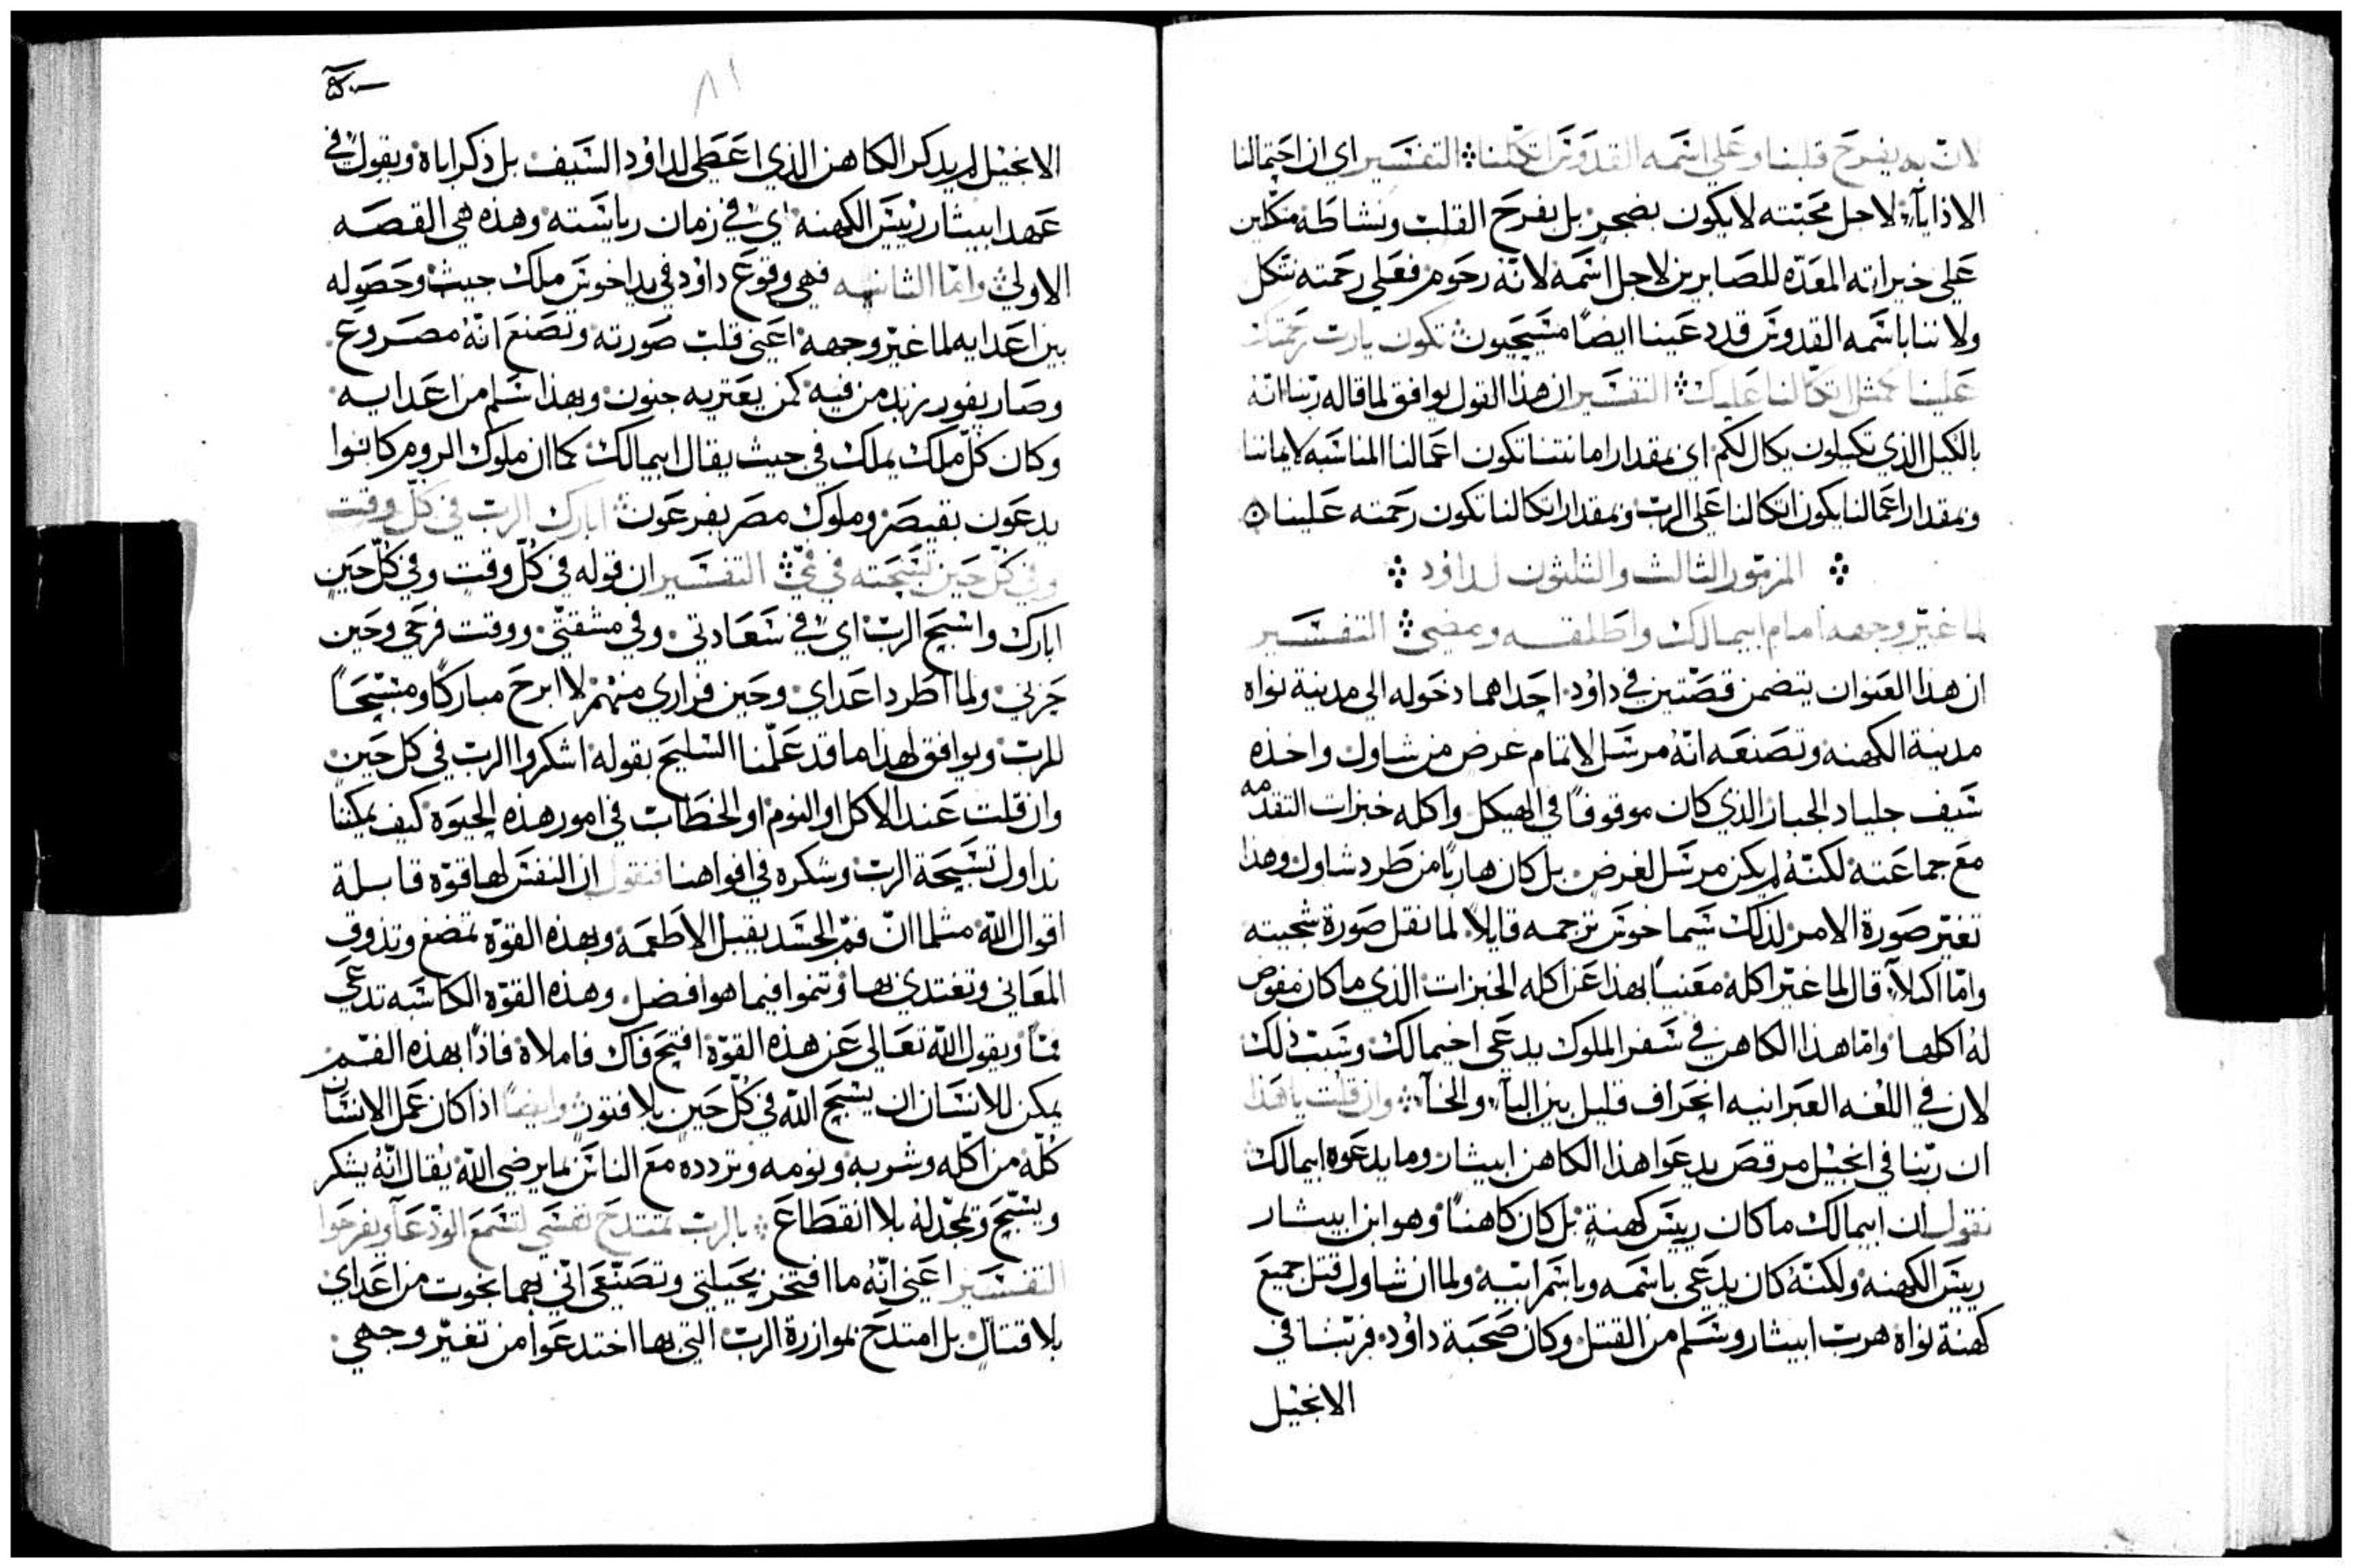 لانّ به يفرح قلبنا وعلى اسمه القدوس اتكلنا التفسير اي ان احتمالنا
الاذايآء لاجل محبّته لا يكون بضجر بل بفرح القلب ونشاطه متكلين
على خيراته المعدّه للصابرين لاجل اسمه لانّه رحوم فعلى رحمته نتكل
ولاننا باسمه القدوس قد دعينا ايضًا مسيحيون تكون يارب رحمتك
علينا كمثل اتكالنا عليك التفسير ان هذا القول يوافق لما قاله ربّنا انّه
بالكيل الذي تكيلون يكال لكم اي بمقدار امانتنا تكون اعمالنا المناسبه لايماننا
وبمقدار اعمالنا يكون اتكالنا على الرب وبمقدار اتكالنا تكون رحمته علينا
المزمور الثالث والثلثون لداوُد
لما غيّر وجهه امام ابيمالك واطلقه ومضى التفسير
ان هذا العنوان يتضمن قصّتين في داوُد احداهما دخوله الى مدينة نواه
مدينة الكهنه وتصنعه انّهُ مرسل لاتمام غرض من شاول واخذه
سيف جلياد الجبار الذي كان موقوفًا في الهيكل واكله خبزات التقدمه
مع جماعته لكنّهُ لم يكن مرسل لغرض بل كان هاربًا من طرد شاول وهذا
تغيّر صورة الامر لذلك سيماخوس ترجمه قايلاً لما نقل صورة سجيته
وامّا اكيلآ قال لما غيّر اكله معنيًا بهذا عن اكله الخبزات الذي ما كان مفوض
لهُ اكلها وامّا هذا الكاهن في سفر الملوك يدعى اخيمالك وسبب ذلك
لان في اللغه العبرانيه انحراف قليل بين البآء والخآء وان قلت ياهذا
ان ربّنا في انجيل مرقص يدعوا هذا الكاهن ابيثار وما يدعوه ابيمالك
نقول ان ابيمالك ما كان رييس كهنةٍ بل كان كاهنًا وهو ابن ابيثار
رييس الكهنه ولكنّهُ كان يدعى باسمه وباسم ابيه ولما ان شاول قتل جميع
كهنة نواه هرب ابيثار وسلم من القتل وكان صحبة داوُد فربّنا في
الانجيل
٨١
الانجيل لم يذكر الكاهن الذي اعطى لداوُد السيف بل ذكر اباه ويقول في
عهد ابيثار رييس الكهنه اي في زمان رياسته وهذه هي القصه
الاولى وامّا الثانيه فهي وقوع داوُد في يد اخوس ملك جيث وحصوله
بين اعدايه لما غيّر وجهه اعني قلب صورته وتصنع انّهُ مصروع
وصار يفور زبد من فيه كمن يعتريه جنون وبهذا سلم من اعدايه
وكان كلّ ملك يملك في جيث يقال ابيمالك كما ان ملوك الروم كانوا
يدعون بقيصر وملوك مصر بفرعون ابارك الرب في كلّ وقت
وفي كلّ حين تسبحته في فمّي التفسير ان قوله في كلّ وقت وفي كلّ حين
ابارك واسبح الرب اي في سعادتي وفي مشقتي ووقت فرحي وحين
حزني ولما اطرد اعداي وحين فراري منهم لا ابرح مباركًا ومسبّحًا
للرب ويوافق لهذا ما قد علّمنا السليح بقوله اشكروا الرب في كل حين
وان قلت عند الاكل او النوم او الخطاب في امور هذه الحيوة كيف يمكننا
نداول تسبيحة الرب وشكره في افواهنا فنقول ان النفس لها قوّه قابلة
اقوال اللّه مثلما انّ فمّ الجسد يقبل الاطعمه وبهذه القوّه تمضغ وتذوق
المعاني وتغتدي بها وتنموا فيما هو افضل وهذه القوّه الكاسبه تدعى
فمًّا ويقول اللّه تعالى عن هذه القوّة افتح فاك فاملاهُ فاذًا بهذه الفم
يمكن للانسان ان يسبّح اللّه في كلّ حين بلا فتور وايضًا اذا كان عمل الانسان
كُلّه من اكله وشربه ونومه وتردده مع الناس بما يرضي اللّه يُقال انّهُ يشكر
ويسبّح ويمجّد لهُ بلا انقطاع بالرب تمتدح نفسي لتسمع الودعآء ويفرحوا
التفسير اعني انّهُ ما افتخر بحيلتي وتصنّعي انّي بهما نجوت من اعداي
بلا قتال بل امتدح بموازرة الرب التي بها اختدعوا من تغيّر وجهي